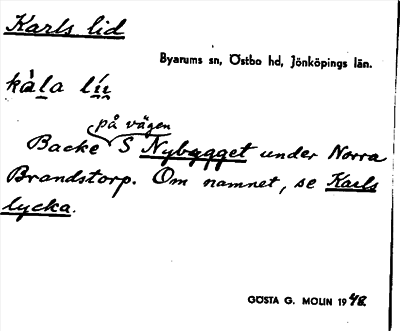 Karls lid
Byarums sn, Östbo hd, Jönköpings län.
på vägen
Backe S Nybygget under Norra
Brandstorp. Om namnet, se Karls
lycka.
GÖSTA G. MOLIN 1948.